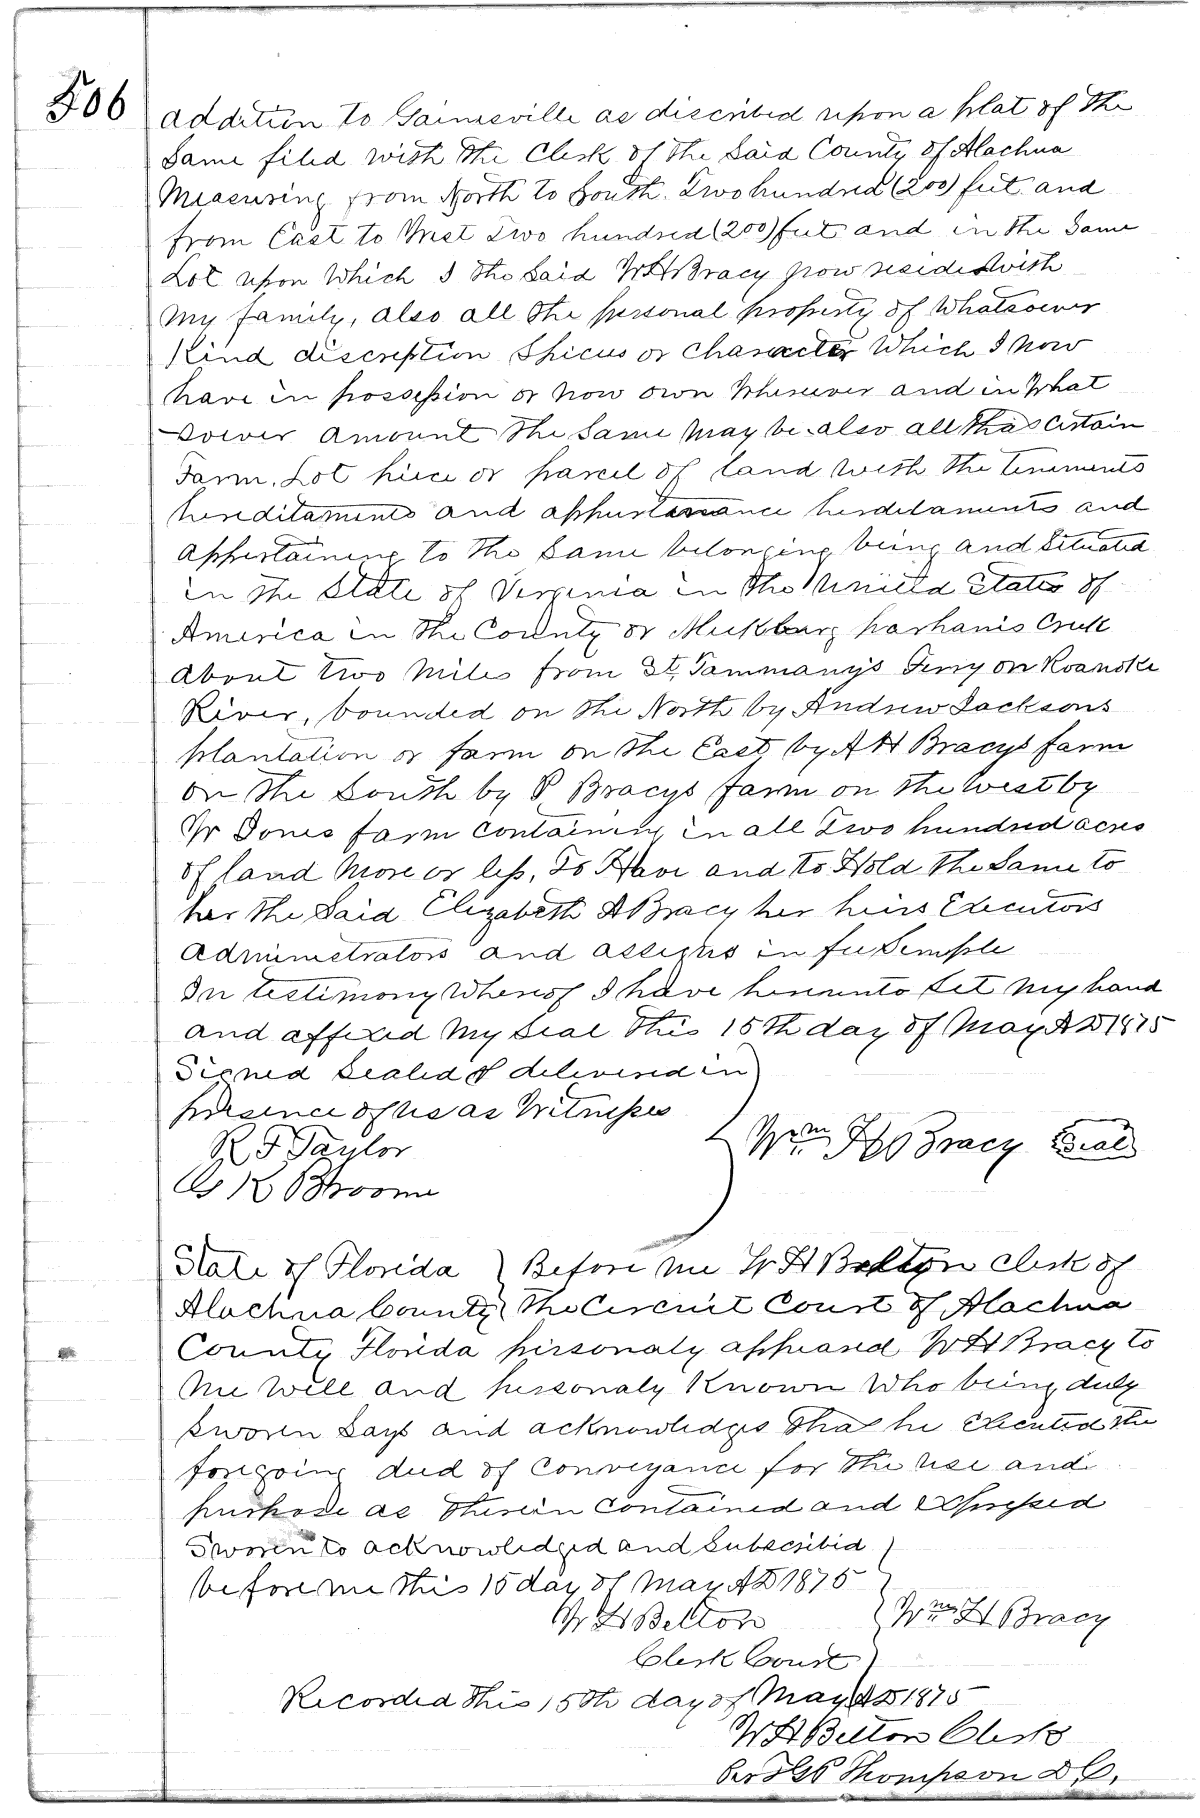 506
addition to Gainesville as discribed upon a plat of the
Same filed with the Clerk of the Said County of Alachua
Measuring from North to South Two hundred (200) feet and
from East to West Two hundred (200) feet and in the Same
Lot upon Which I the Said W H Bracy now resides With
My family, also all the personal property of Whatsoever
Kind discreption Spicus or Character Which I now
have in possession or now own Wherever and in What
soever amount the Same May be also all that Certain
Farm, Lot piece or parcel of land With the tenements
hereditaments and appurtenance herdetaments and
appertaining to the Same belonging being and Situated
in the State of Verginia in the United States of
America in the County or Meckburg parhanis Creek
about two Miles from St. Tammany's Ferry on Roanoke
River, bounded on the North by Andrew Jacksons
plantation or farm on the East by A H Bracys farm
on the South by P Bracys farm on the West by
W Jones farm Containing in all Two hundred acres
of land More or less, To Have and to Hold the Same to
her the Said Elizabeth A Bracy her heirs Executors
administrators and assigns in fee Semple
In testimony Whereof I have hereunto Set My hand
and affixed My Seal this 15th day of May A D 1875
Signed Sealed & delivered in
presence of us as Witnesses
R F Taylor
Wm H Bracy Seal
G K Broome
State of Florida Before me W H Belton Clerk of
Alachua County the Circuit Court of Alachua
County Florida pirsonaly appeared W H Bracy to
Me Well and personaly Known Who being duly
Sworen Says and acknowledges that he Executed the
foregoing deed of Conveyance for the use and
purpose as therein Contained and expressed
Sworen to acknowledged and Subscribid
before me this 15 day of May A D 1875
W H Belton Wm H Bracy
Clerk Court
Recorded this 15th day of May A D 1875
W H Belton Clerk
Per T G P Thompson D, C,